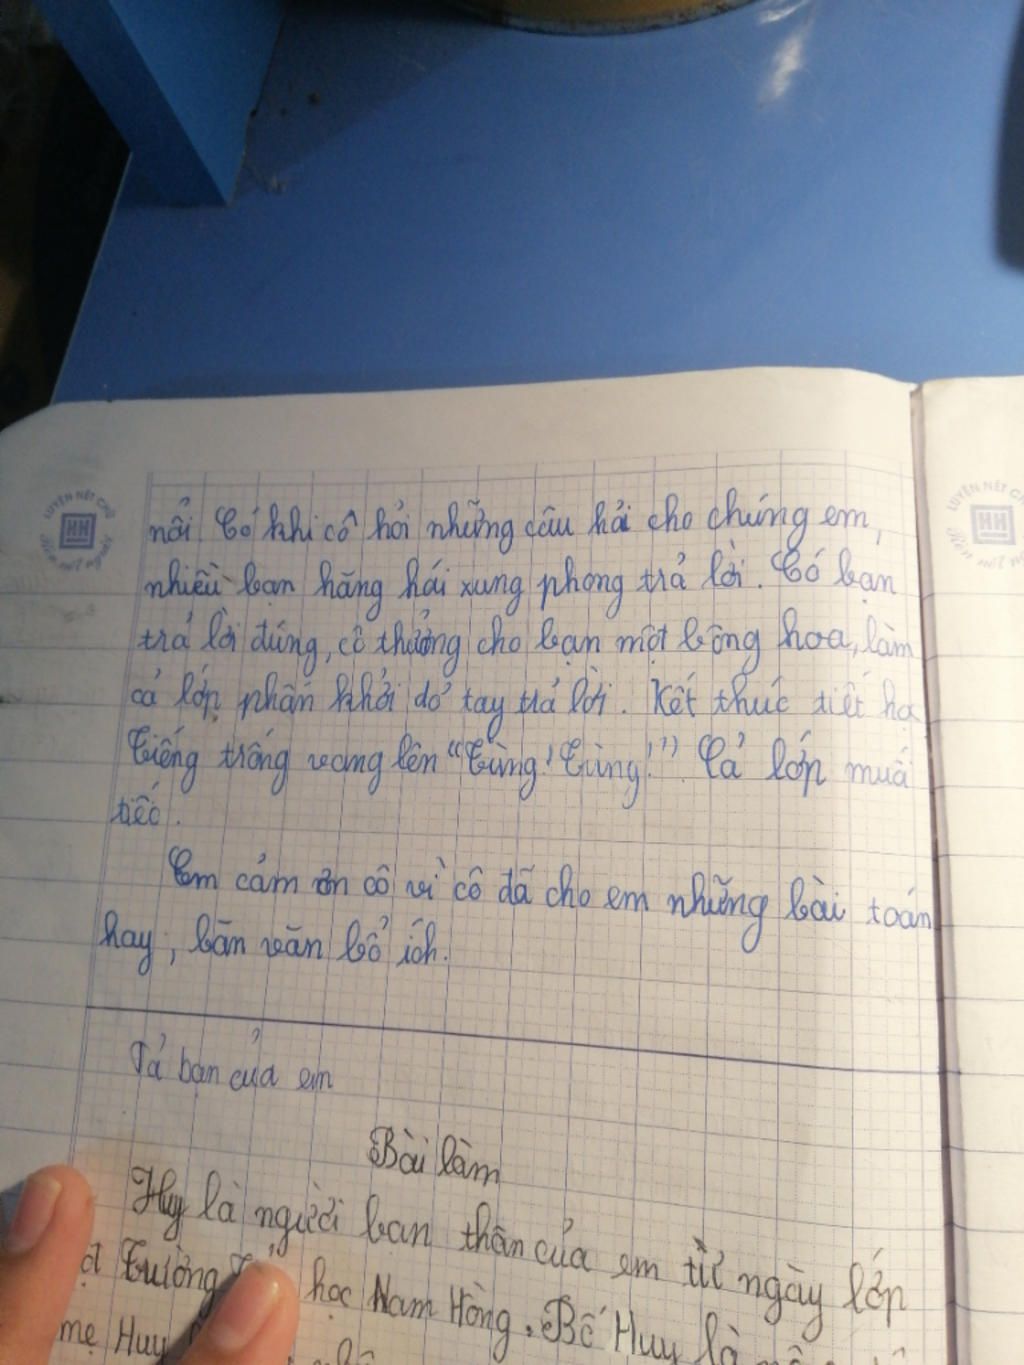 nổi. Có khi cô hỏi những câu hỏi cho chúng em,
nhiều bạn hăng hái xung phong trả lời. Có bạn
trả lời đúng, cô thưởng cho bạn một bông hoa, làm
cả lớp phấn khởi dơ tay trả lời. Kết thúc tiết họ
Tiếng trống vang lên "Tùng! Tùng!" Cả lớp muối
tiếc.
Em cảm ơn cô vì cô đã cho em những bài toán
hay, băn văn bổ ích.
Tả bạn của em
Bài làm
Huy là người bạn thân của em từ ngày lớp
Trường học Nam Hồng. Bố Huy là
mẹ Huy
LUYỆN NÉT CHỮ
HH
LUYỆN NÉT
HH